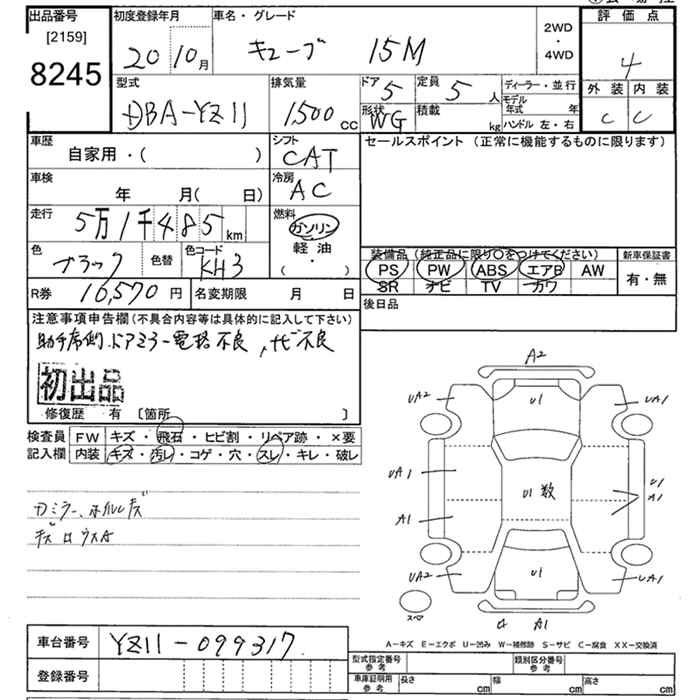 出品番号 初度登録年月 車名・グレード 評価点
[2159]
8245
20 10月 キューブ 15M 2WD・4WD 4
外装 内装
C C
型式 排気量 ドア 定員 ディーラー・並行
DBA-YZ11 1,500cc 5 5人 モデル年式 年
形状 積載
WG kg ハンドル 左・右
車歴 シフト セールスポイント (正常に機能するものに限ります)
自家用・( ) CAT
車検 冷房
年 月( 日) AC
走行 燃料
5万1千485km ガソリン
軽油
・
( )
色 色替 色コード
ブラック KH3
装備品 (純正品に限り○をつけてください) 新車保証書
PS PW ABS エアB AW 有・無
SR ナビ TV カワ
R券 16,570円 名変期限 月 日
後日品
注意事項申告欄(不具合内容等は具体的に記入して下さい)
助手席側ドアミラー電格不良,ナビ不良
初出品
修復歴 有 [箇所 ]
検査員 FW キズ・飛石・ヒビ割・リペア跡・×要
記入欄 内装 キズ・汚レ・コゲ・穴・スレ・キレ・破レ
A2
UA2 U1 UA1
UA1 U1
U1数 A1
A1
UA2 U1 UA1
スペア A1
A-キズ E-エクボ U-凹み W-補修跡 S-サビ C-腐食 XX-交換済
車台番号 YZ11-099317
登録番号
型式指定番号 参考 類別区分番号 参考
車庫証明用 参考 長さ cm 幅 cm 高さ cm